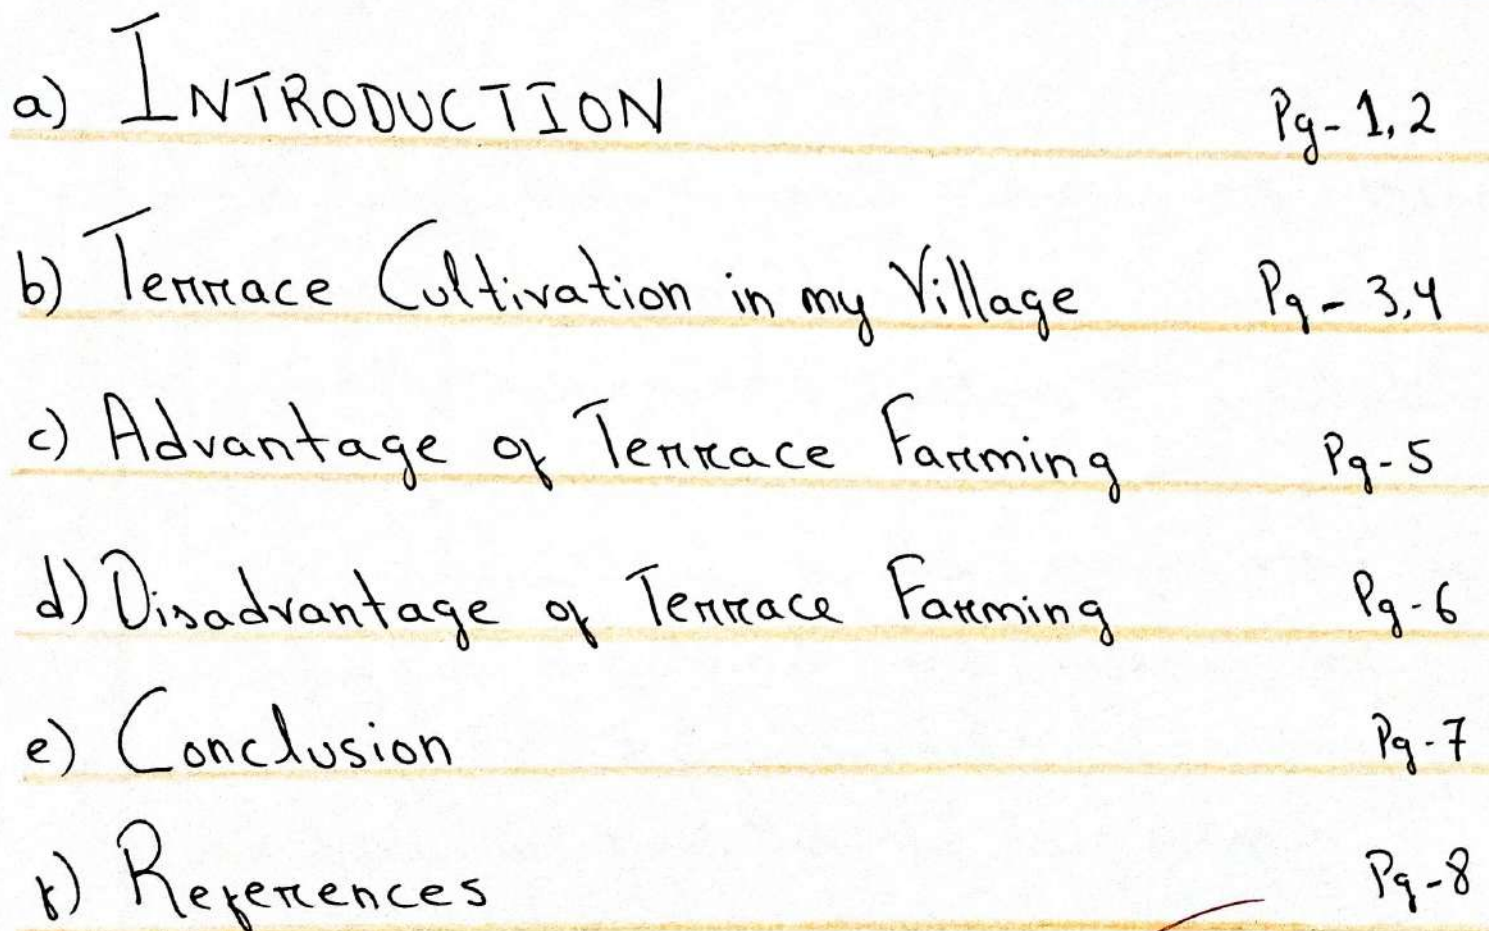 a) INTRODUCTION Pg-1,2
b) Terrace Cultivation in my Village Pg-3,4
c) Advantage of Terrace Farming Pg-5
d) Disadvantage of Terrace Farming Pg-6
e) Conclusion Pg-7
f) References Pg-8